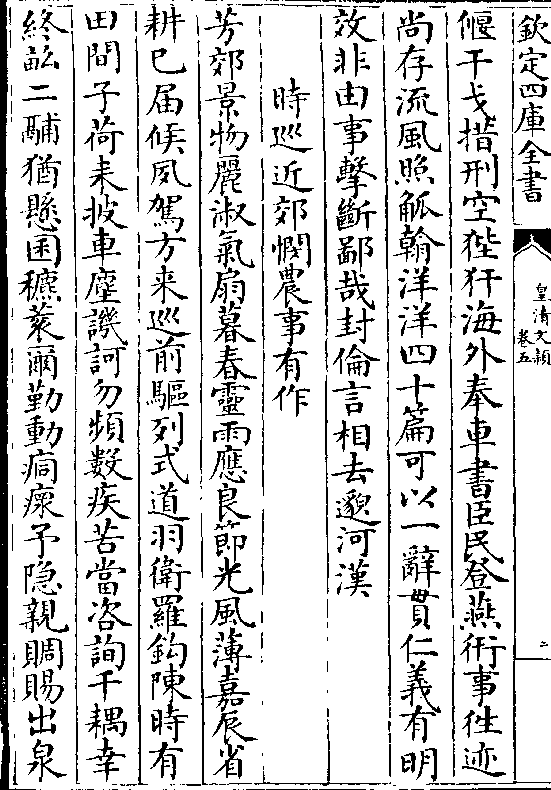 欽定四庫全書
皇清文穎
卷五
二
偃干戈措刑空狴犴海外奉車書臣民登燕衎事徃迹
尚存流風照觚翰洋洋四十篇可以一辭貫仁義有明
效非由事擊斷鄙哉封倫言相去邈河漢
時巡近郊憫農事有作
芳郊景物麗淑氣扇暮春靈雨應良節光風薄嘉辰省
耕已届候夙駕方来巡前驅列式道羽衛羅鈎陳時有
田間子荷耒披車塵譏訶勿頻數疾苦當咨詢千耦幸
終畝二鬴猶懸囷穮蔉爾勤動痌瘝予隐親賙賜出泉